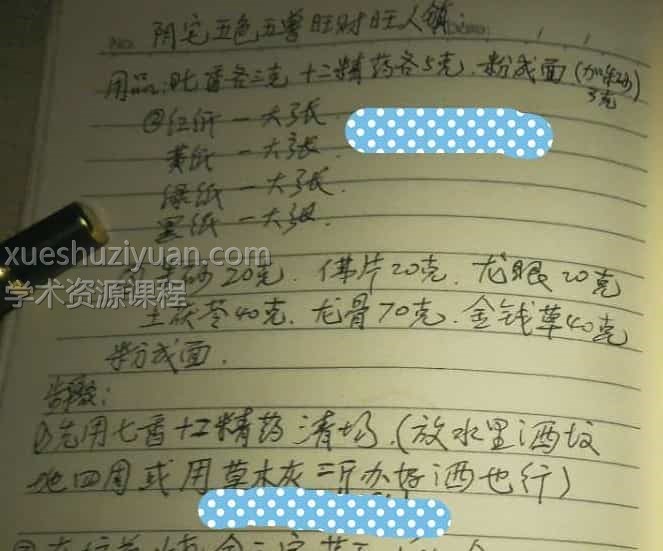 No.
阴宅五色五兽旺财旺人铺:
用品:七香各三克 十二精药各5克.粉成面(加朱砂
3克)
②红纸一大张
黄纸一大张.
绿纸一大张.
黑纸一大张.
朱砂20克.佛片20克.龙眼20克
土茯苓40克.龙骨70克.金钱草40克
粉成面.
步骤:
①先用七香十二精药清场.(放水里洒坟
地四周或用草木灰二斤办好洒也行)
xueshuziyuan.com
学术资源课程